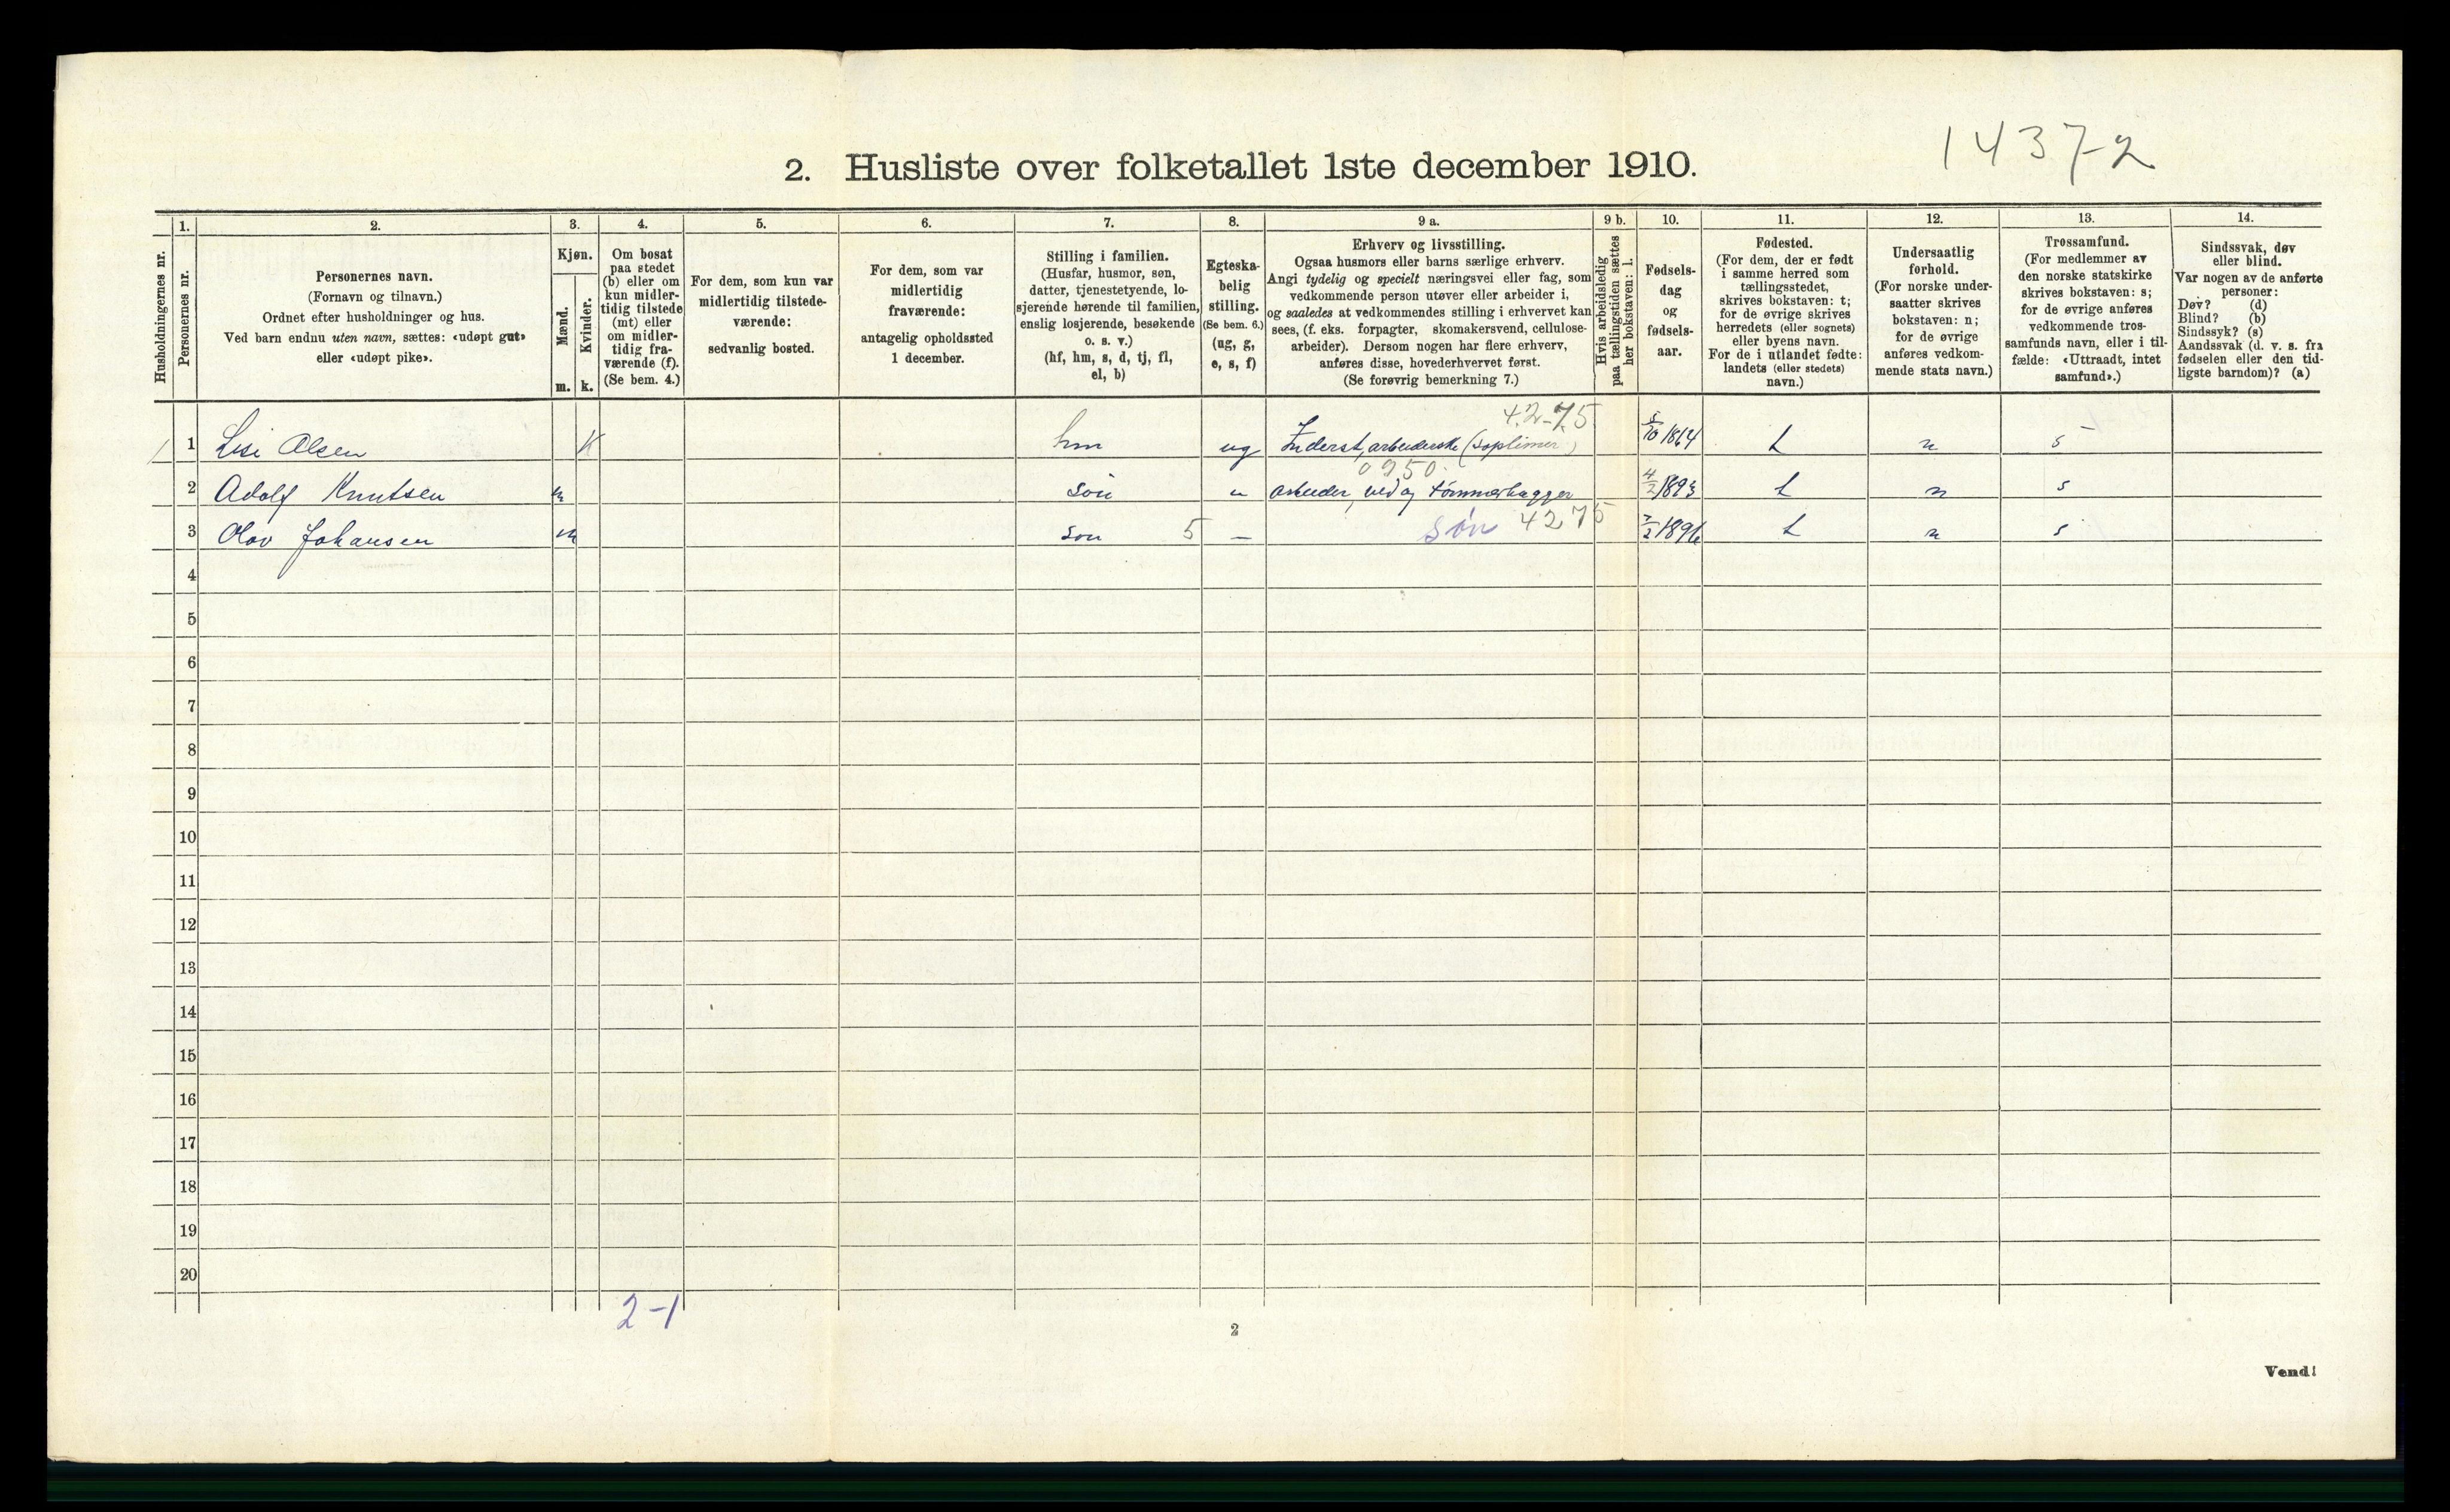 1437-2
2. Husliste over folketallet 1ste december 1910.
1. 2. 3. 4. 5. 6. 7. 8. 9 a. 9 b. 10. 11. 12. 13. 14.
Husholdningernes nr.
Personernes nr.
Personernes navn.
(Fornavn og tilnavn.)
Ordnet efter husholdninger og hus.
Ved barn endnu uten navn, sættes: «udøpt gut»
eller «udøpt pike».
Kjøn.
Mænd.
Kvinder.
m. k.
Om bosat
paa stedet
(b) eller om
kun midler-
tidig tilstede
(mt) eller
om midler-
tidig fra-
værende (f).
(Se bem. 4.)
For dem, som kun var
midlertidig tilstede-
værende:
sedvanlig bosted.
For dem, som var
midlertidig
fraværende:
antagelig opholdssted
1 december.
Stilling i familien.
(Husfar, husmor, søn,
datter, tjenestetyende, lo-
sjerende hørende til familien,
enslig losjerende, besøkende
o. s. v.)
(hf, hm, s, d, tj, fl,
el, b)
Egteska-
belig
stilling.
(Se bem. 6.)
(ug, g,
e, s, f)
Erhverv og livsstilling.
Ogsaa husmors eller barns særlige erhverv.
Angi tydelig og specielt næringsvei eller fag, som
vedkommende person utøver eller arbeider i,
og saaledes at vedkommendes stilling i erhvervet kan
sees, (f. eks. forpagter, skomakersvend, cellulose-
arbeider). Dersom nogen har flere erhverv,
anføres disse, hovederhvervet først.
(Se forøvrig bemerkning 7.)
Hvis arbeidsledig
paa tællingstiden sættes
her bokstaven: l.
Fødsels-
dag
og
fødsels-
aar.
Fødested.
(For dem, der er født
i samme herred som
tællingsstedet,
skrives bokstaven: t;
for de øvrige skrives
herredets (eller sognets)
eller byens navn.
For de i utlandet fødte:
landets (eller stedets)
navn.)
Undersaatlig
forhold.
(For norske under-
saatter skrives
bokstaven: n;
for de øvrige
anføres vedkom-
mende stats navn.)
Trossamfund.
(For medlemmer av
den norske statskirke
skrives bokstaven: s;
for de øvrige anføres
vedkommende tros-
samfunds navn, eller i til-
fælde: «Uttraadt, intet
samfund».)
Sindssvak, døv
eller blind.
Var nogen av de anførte
personer:
Døv? (d)
Blind? (b)
Sindssyk? (s)
Aandssvak (d. v. s. fra
fødselen eller den tid-
ligste barndom)? (a)
42-75
1 1 Lisi Olsen K hm ug Inderst, arbeiderske 5/10 1864 t n s
0950
2 Adolf Knutsen m søn " arbeider, ved og tömmerhugger 4/2 1893 t n s
3 Olav Johansen m søn 5 — søn 4275 7/2 1896 t n s
4
5
6
7
8
9
10
11
12
13
14
15
16
17
18
19
20
2-1
2
Vend!